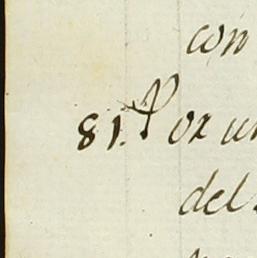 con
81. Por un
del